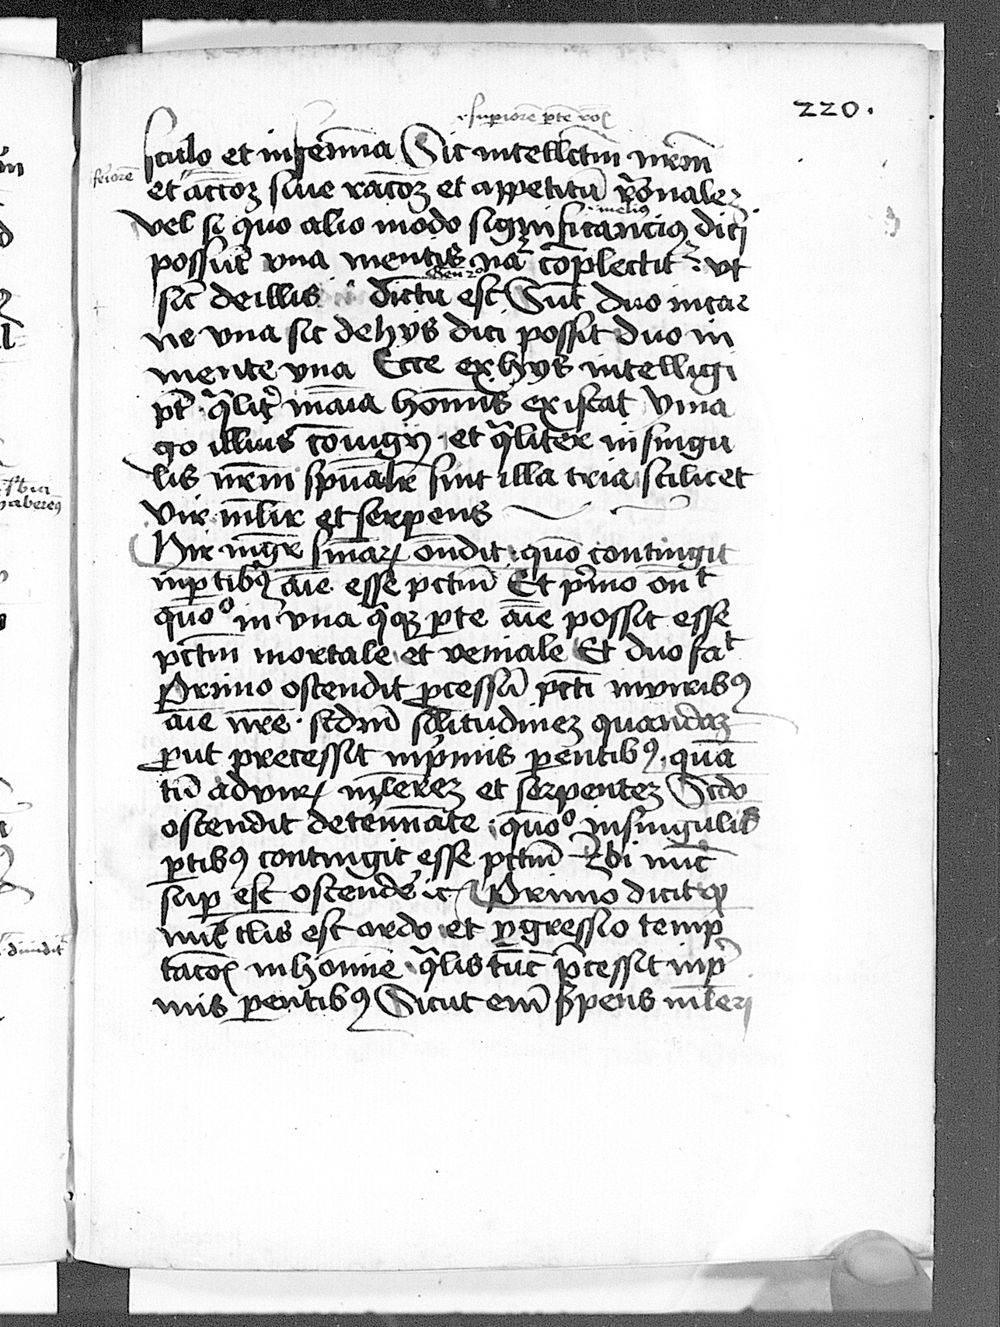 220.
.superiorē ptē rōis
sculo et in femina Sic intellctm nrm
feriorē
et accoz siue racoz et appetitū rōnalez
melius
vel si quo alio modo significancius dici
possūt vna mentis nā cōplectit : vt
Gen 2º
sic de illis dictū est Sūt duo in car
ne vna sic de hijs dici possit duo in
mente vna Ecce ex hijs intelligi
pt qͣlit in aīa hois existat ymą
go illius cōiugij et qͣliter in singu
lis nrm spūalr sint illa tria scilicet
vir mlir et serpens
Hic mgr ondit quō contingit
in ptibꝰ aīe esse pctm Et pͥmo onᵗ
quoº in vna qͣqꝫ pte aīe possit esse
pctm mortale et veniale Et duo fatᵗ
Primo ostendit pcessū pcti in viribꝰ
aīe nre scdm slitudinez quandaz
put precessit in pͥmis pentibꝰ quā
tū ad vir mlierez et serpentez Scdo
ostendit determīate quoº in singulis
ptibꝰ contingit esse pctm Ibi nūc
sup est ostendē ic Primo dicit qꝫ
nūc tlis est ordo et pgressio temp
tacois in hoīe qͣlis tūc pcessit in pͥ
mis pentibꝰ Sicut enī spens mlieri